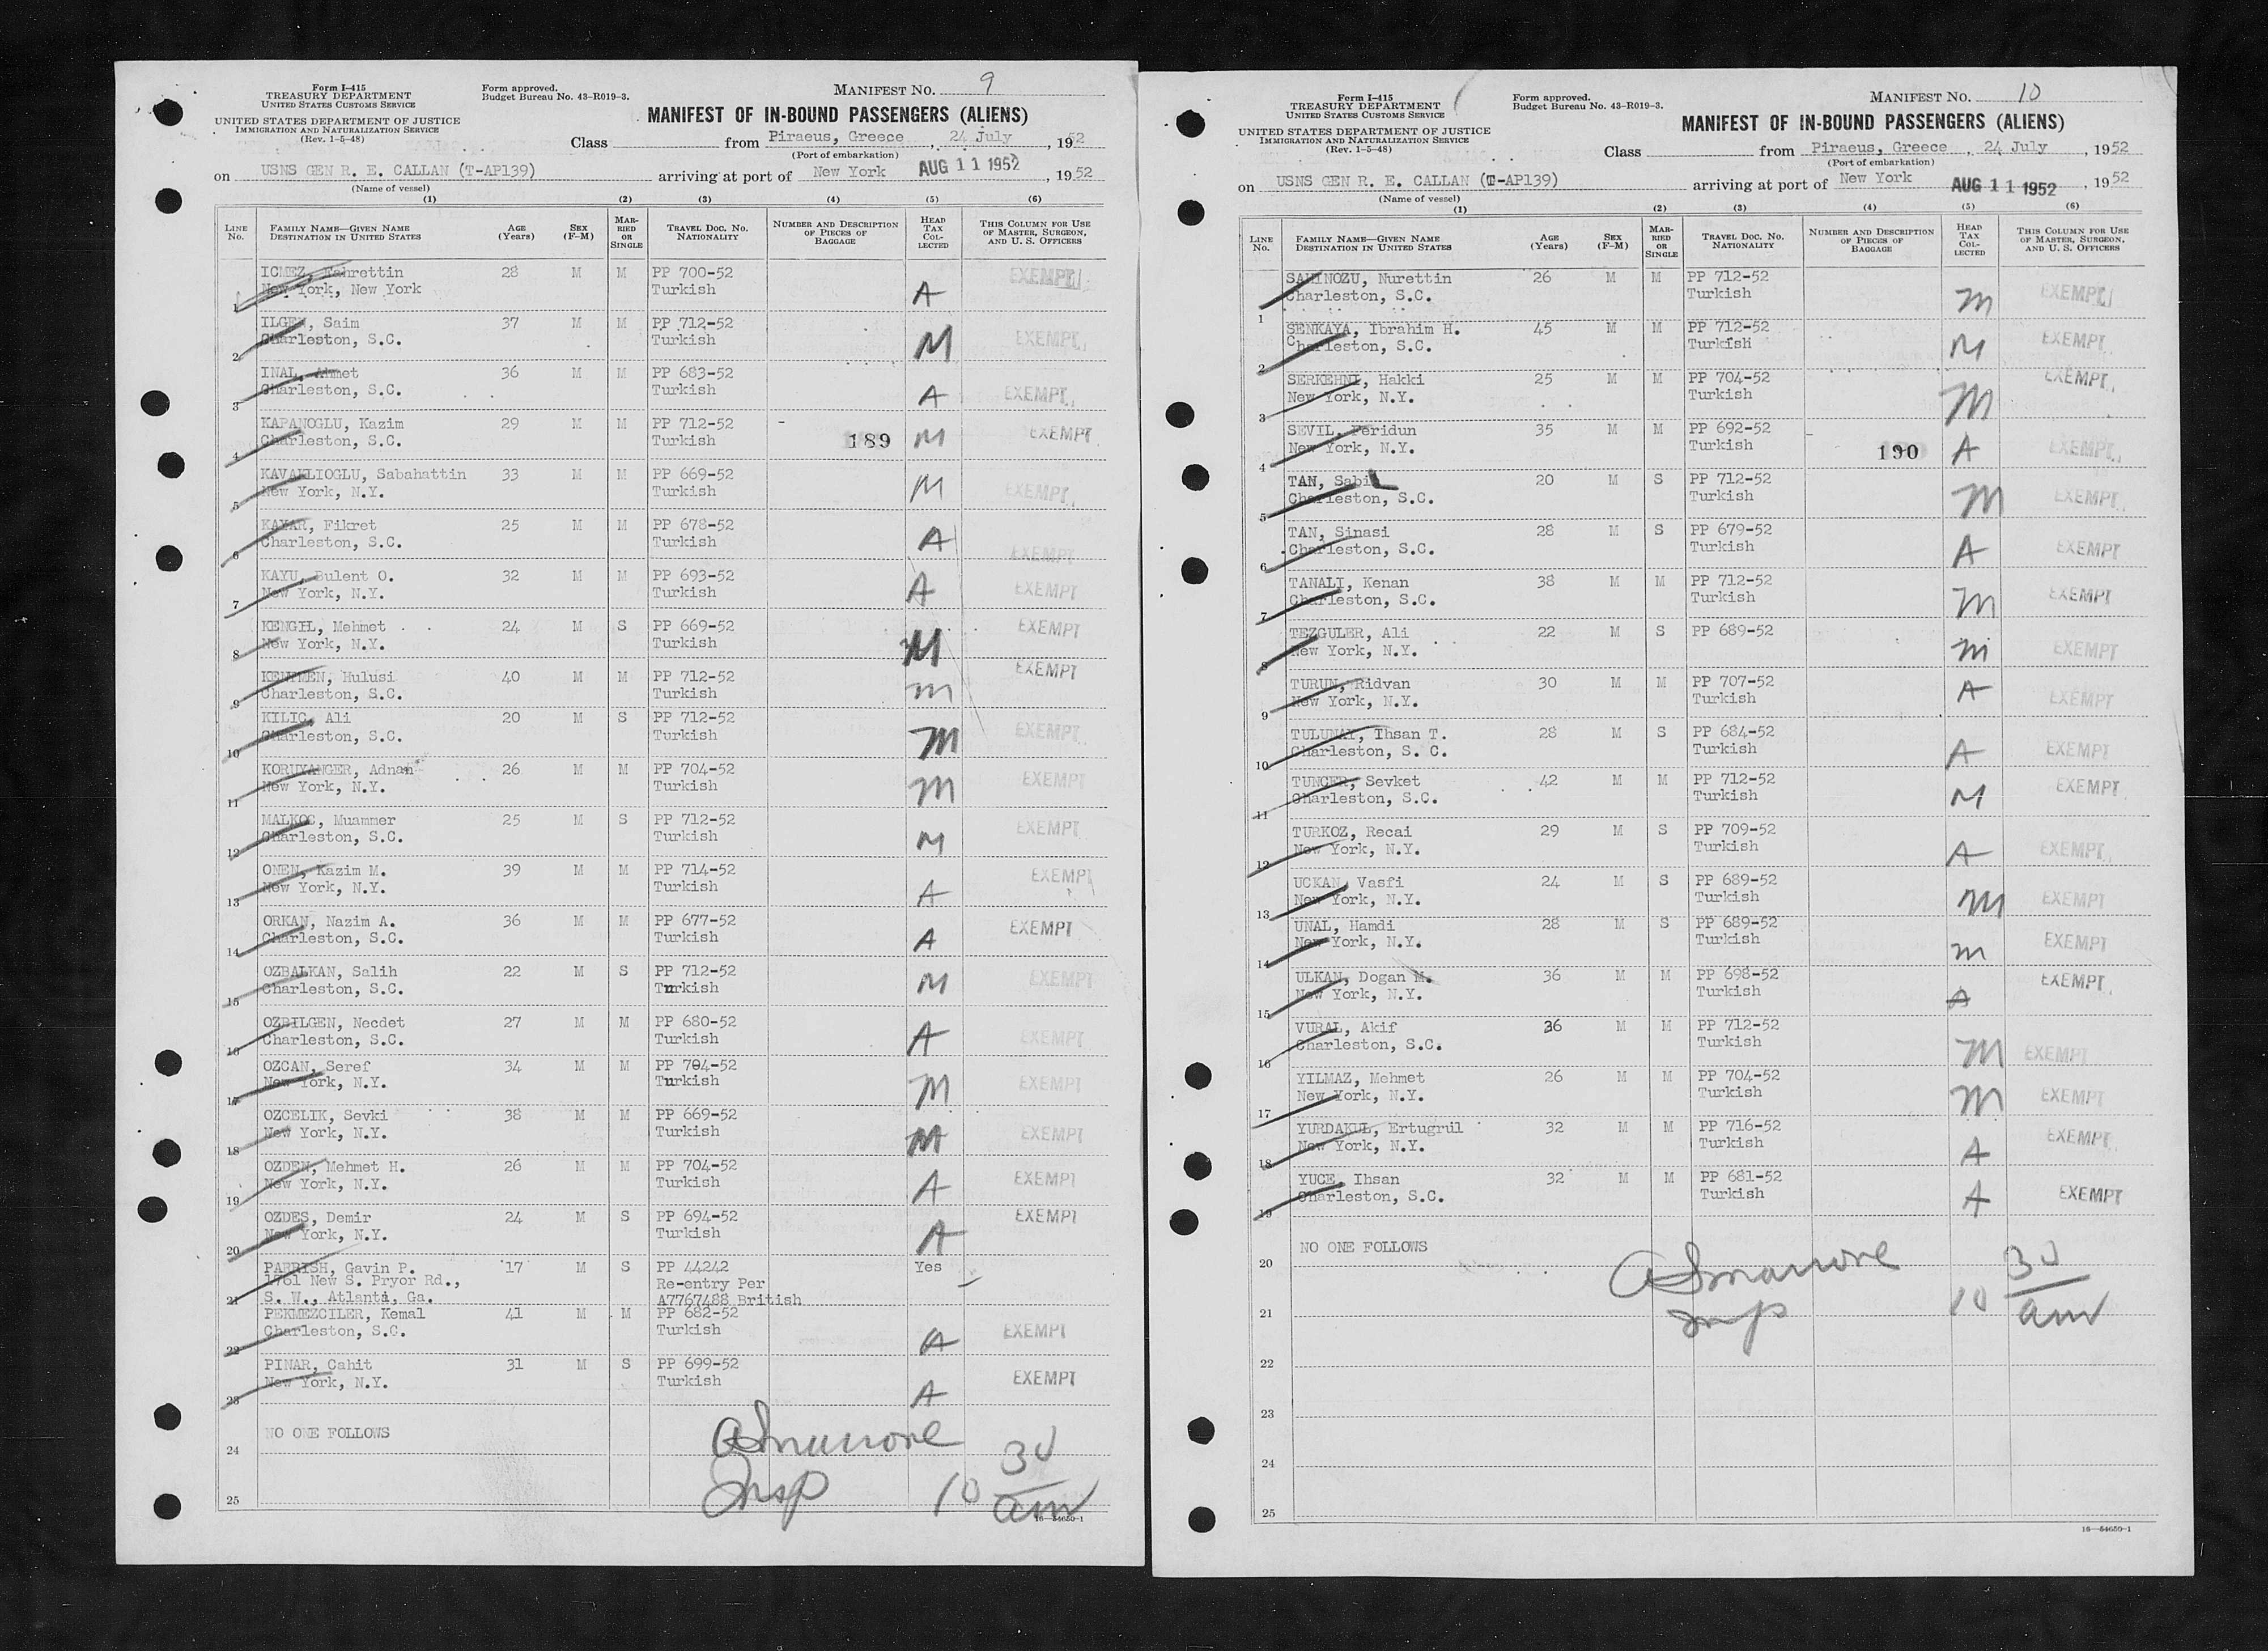 Form I-415
TREASURY DEPARTMENT
UNITED STATES CUSTOMS SERVICE
UNITED STATES DEPARTMENT OF JUSTICE
IMMIGRATION AND NATURALIZATION SERVICE
(Rev. 1-5-48)
Form approved.
Budget Bureau No. 43-R019-3.
MANIFEST No. 9
MANIFEST OF IN-BOUND PASSENGERS (ALIENS)
Class from Piraeus, Greece, 24 July, 1952
(Port of embarkation)
on USNS GEN R. E. CALLAN (T-AP139) arriving at port of New York AUG 11 1952, 1952
(Name of vessel)
(1) (2) (3) (4) (5) (6)
LINE No. FAMILY NAME—GIVEN NAME DESTINATION IN UNITED STATES AGE (Years) SEX (F-M) MARRIED OR SINGLE TRAVEL DOC. NO. NATIONALITY NUMBER AND DESCRIPTION OF PIECES OF BAGGAGE HEAD TAX COLLECTED THIS COLUMN FOR USE OF MASTER, SURGEON, AND U. S. OFFICERS
ICMEZ, Fahrettin 28 M M PP 700-52 EXEMPT
1 New York, New York Turkish A
ILGEN, Saim 37 M M PP 712-52 EXEMPT
2 Charleston, S.C. Turkish M
INAL, Ahmet 36 M M PP 683-52 EXEMPT
3 Charleston, S.C. Turkish A
KAPANOGLU, Kazim 29 M M PP 712-52 EXEMPT
4 Charleston, S.C. Turkish 189 M
KAVAKLIOGLU, Sabahattin 33 M M PP 669-52 EXEMPT
5 New York, N.Y. Turkish M
KAYAR, Fikret 25 M M PP 678-52 EXEMPT
6 Charleston, S.C. Turkish A
KAYU, Bulent O. 32 M M PP 693-52 EXEMPT
7 New York, N.Y. Turkish A
KENGIL, Mehmet 24 M S PP 669-52 EXEMPT
8 New York, N.Y. Turkish M
Hulusi 40 M M PP 712-52 EXEMPT
9 Charleston, S.C. Turkish M
KILIC, Ali 20 M S PP 712-52 EXEMPT
10 Charleston, S.C. Turkish M
KORUYANGER, Adnan 26 M M PP 704-52 EXEMPT
11 New York, N.Y. Turkish M
MALKOC, Muammer 25 M S PP 712-52 EXEMPT
12 Charleston, S.C. Turkish M
ONEN, Kazim M. 39 M M PP 714-52 EXEMPT
13 New York, N.Y. Turkish A
ORKAN, Nazim A. 36 M M PP 677-52 EXEMPT
14 Charleston, S.C. Turkish A
OZBALKAN, Salih 22 M S PP 712-52 EXEMPT
15 Charleston, S.C. Turkish M
OZBILGEN, Necdet 27 M M PP 680-52 EXEMPT
16 Charleston, S.C. Turkish A
OZCAN, Seref 34 M M PP 704-52 EXEMPT
17 New York, N.Y. Turkish M
OZCELIK, Sevki 38 M M PP 669-52 EXEMPT
18 New York, N.Y. Turkish M
OZDEN, Mehmet H. 26 M M PP 704-52 EXEMPT
19 New York, N.Y. Turkish A
OZDES, Demir 24 M S PP 694-52 EXEMPT
20 New York, N.Y. Turkish A
PARRISH, Gavin P. 17 M S PP 44242 Yes
1761 New S. Pryor Rd., Re-entry Per
21 S. W., Atlanta, Ga. A7767488 British
PEKMEZCILER, Kemal 41 M M PP 682-52 EXEMPT
22 Charleston, S.C. Turkish A
PINAR, Cahit 31 M S PP 699-52 EXEMPT
23 New York, N.Y. Turkish A
24 NO ONE FOLLOWS
25 Insp 10 30 am
16—54650-1
Form I-415
TREASURY DEPARTMENT
UNITED STATES CUSTOMS SERVICE
UNITED STATES DEPARTMENT OF JUSTICE
IMMIGRATION AND NATURALIZATION SERVICE
(Rev. 1-5-48)
Form approved.
Budget Bureau No. 43-R019-3.
MANIFEST No. 10
MANIFEST OF IN-BOUND PASSENGERS (ALIENS)
Class from Piraeus, Greece, 24 July, 1952
(Port of embarkation)
on USNS GEN R. E. CALLAN (T-AP139) arriving at port of New York AUG 11 1952, 1952
(Name of vessel)
(1) (2) (3) (4) (5) (6)
LINE No. FAMILY NAME—GIVEN NAME DESTINATION IN UNITED STATES AGE (Years) SEX (F-M) MARRIED OR SINGLE TRAVEL DOC. NO. NATIONALITY NUMBER AND DESCRIPTION OF PIECES OF BAGGAGE HEAD TAX COLLECTED THIS COLUMN FOR USE OF MASTER, SURGEON, AND U. S. OFFICERS
SAHINOZU, Nurettin 26 M M PP 712-52 EXEMPT
1 Charleston, S.C. Turkish M
SENKAYA, Ibrahim H. 45 M M PP 712-52 EXEMPT
2 Charleston, S.C. Turkish M
SERKEHNI, Hakki 25 M M PP 704-52 EXEMPT
3 New York, N.Y. Turkish M
SEVIL, Feridun 35 M M PP 692-52 EXEMPT
4 New York, N.Y. Turkish 190 A
TAN, Sabil 20 M S PP 712-52 EXEMPT
5 Charleston, S.C. Turkish M
TAN, Sinasi 28 M S PP 679-52 EXEMPT
6 Charleston, S.C. Turkish A
TANALI, Kenan 38 M M PP 712-52 EXEMPT
7 Charleston, S.C. Turkish M
TEZGULER, Ali 22 M S PP 689-52 EXEMPT
8 New York, N.Y. M
TURUN, Ridvan 30 M M PP 707-52 EXEMPT
9 New York, N.Y. Turkish A
TULUNAY, Ihsan T. 28 M S PP 684-52 EXEMPT
10 Charleston, S. C. Turkish A
TUNCER, Sevket 42 M M PP 712-52 EXEMPT
11 Charleston, S.C. Turkish M
TURKOZ, Recai 29 M S PP 709-52 EXEMPT
12 New York, N.Y. Turkish A
UCKAN, Vasfi 24 M S PP 689-52 EXEMPT
13 New York, N.Y. Turkish M
UNAL, Hamdi 28 M S PP 689-52 EXEMPT
14 New York, N.Y. Turkish M
ULKAN, Dogan M. 36 M M PP 698-52 EXEMPT
15 New York, N.Y. Turkish A
VURAL, Akif 36 M M PP 712-52 EXEMPT
16 Charleston, S.C. Turkish M
YILMAZ, Mehmet 26 M M PP 704-52 EXEMPT
17 New York, N.Y. Turkish M
YURDAKUL, Ertugrul 32 M M PP 716-52 EXEMPT
18 New York, N.Y. Turkish A
YUCE, Ihsan 32 M M PP 681-52 EXEMPT
19 Charleston, S.C. Turkish A
20 NO ONE FOLLOWS
21 Insp 10 30 am
22
23
24
25
16—54650-1